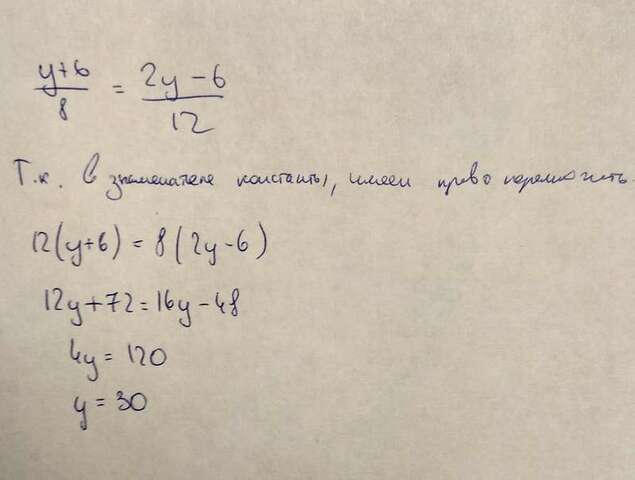 y+6/8 = 2y-6/12
Т.к. в знаменателе константы, имеем право перемножить.
12(y+6) = 8(2y-6)
12y+72=16y-48
4y = 120
y = 30